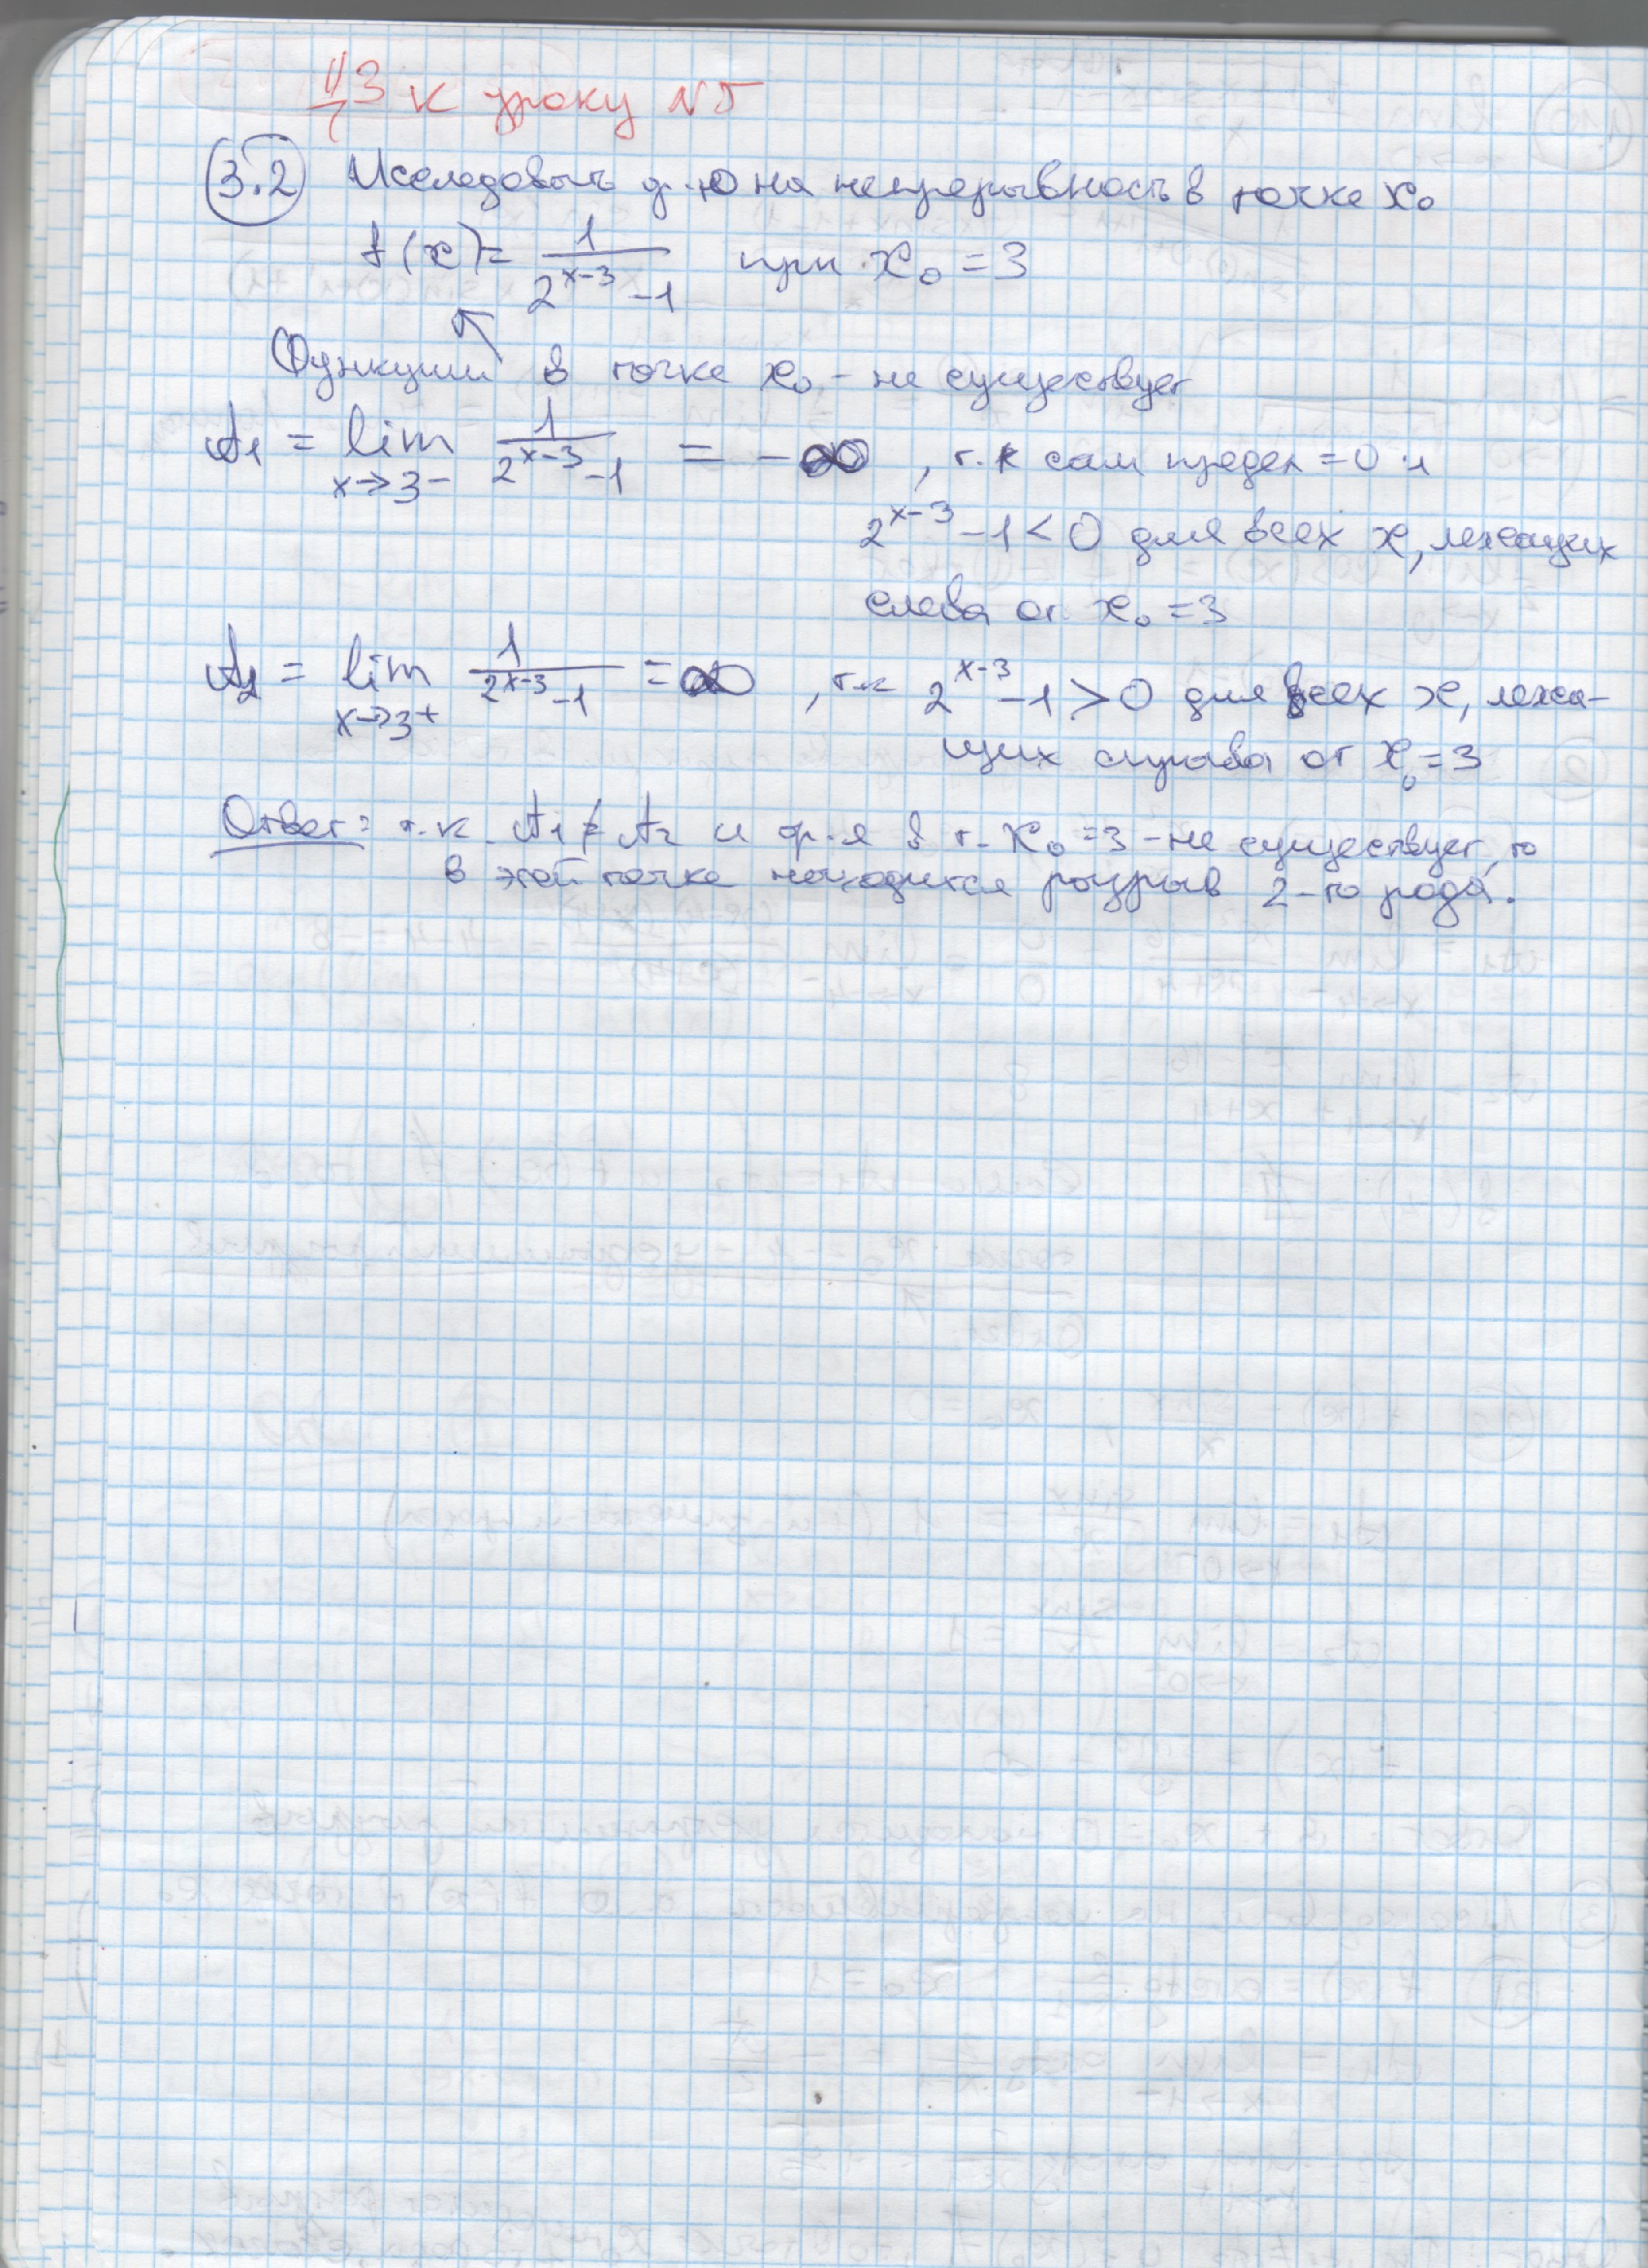 ДЗ к уроку №5
3.2 Исследовать ф-ю на непрерывность в точке x₀
f(x) = 1/(2^(x-3) - 1) при x₀ = 3
Функции в точке x₀ - не существует
A₁ = lim x→3- 1/(2^(x-3) - 1) = -∞, т.к сам предел = 0 и
2^(x-3) - 1 < 0 для всех x, лежащих
слева от x₀ = 3
A₂ = lim x→3+ 1/(2^(x-3) - 1) = ∞, т.к 2^(x-3) - 1 > 0 для всех x, лежа-
щих справа от x₀ = 3
Ответ: т.к A₁ ≠ A₂ и ф-я в т. x₀ = 3 - не существует, то
в этой точке находится разрыв 2-го рода.